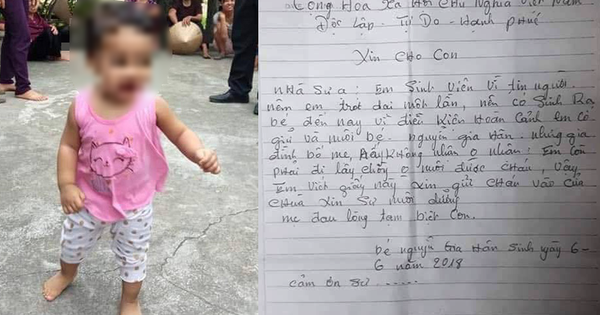 Cộng Hòa Xã Hội Chủ Nghĩa Việt Nam
Độc Lập - Tự Do - Hạnh Phúc
Xin Cho Con
nhà Sư ạ: Em Sinh Viên Vì tin người
nên em trót dại một lần, nên có Sinh Ra
bé đến nay vì điều Kiện Hoàn Cảnh Em cố
giữ và nuôi bé nguyễn gia Hân. nhưng gia
đình bố mẹ, ấy không nhận o nhận: Em còn
phải đi lấy chồng o nuôi được cháu, vậy
Em Viết giấy này xin gửi cháu vào cửa
chùa xin Sư nuôi dưỡng
mẹ đau lòng tạm biệt con.
bé nguyễn Gia Hân Sinh ngày 6-
6 năm 2018
cảm ơn sư ......